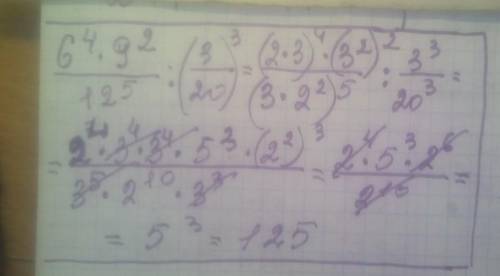 6⁴·9²/12⁵ : (3/20)³ = (2·3)⁴·(3²)²/(3·2²)⁵ : 3³/20³ =
= 2⁴·3⁴·3⁴·5³·(2²)³/3⁵·2¹⁰·3³ = 2⁴·5³·2⁶/2¹⁰ =
= 5³ = 125